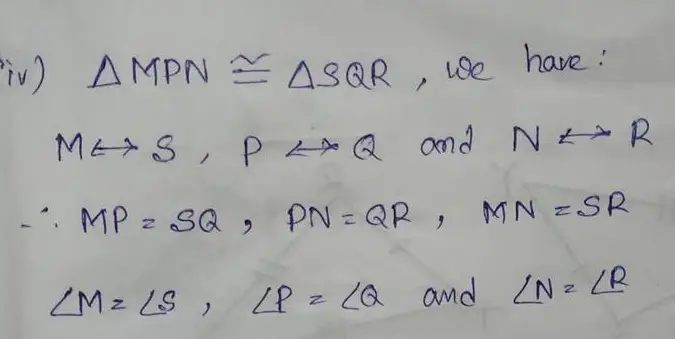 iv) △MPN ≅ △SQR, we have:
M↔S, P↔Q and N↔R
∴ MP = SQ, PN = QR, MN = SR
∠M = ∠S, ∠P = ∠Q and ∠N = ∠R